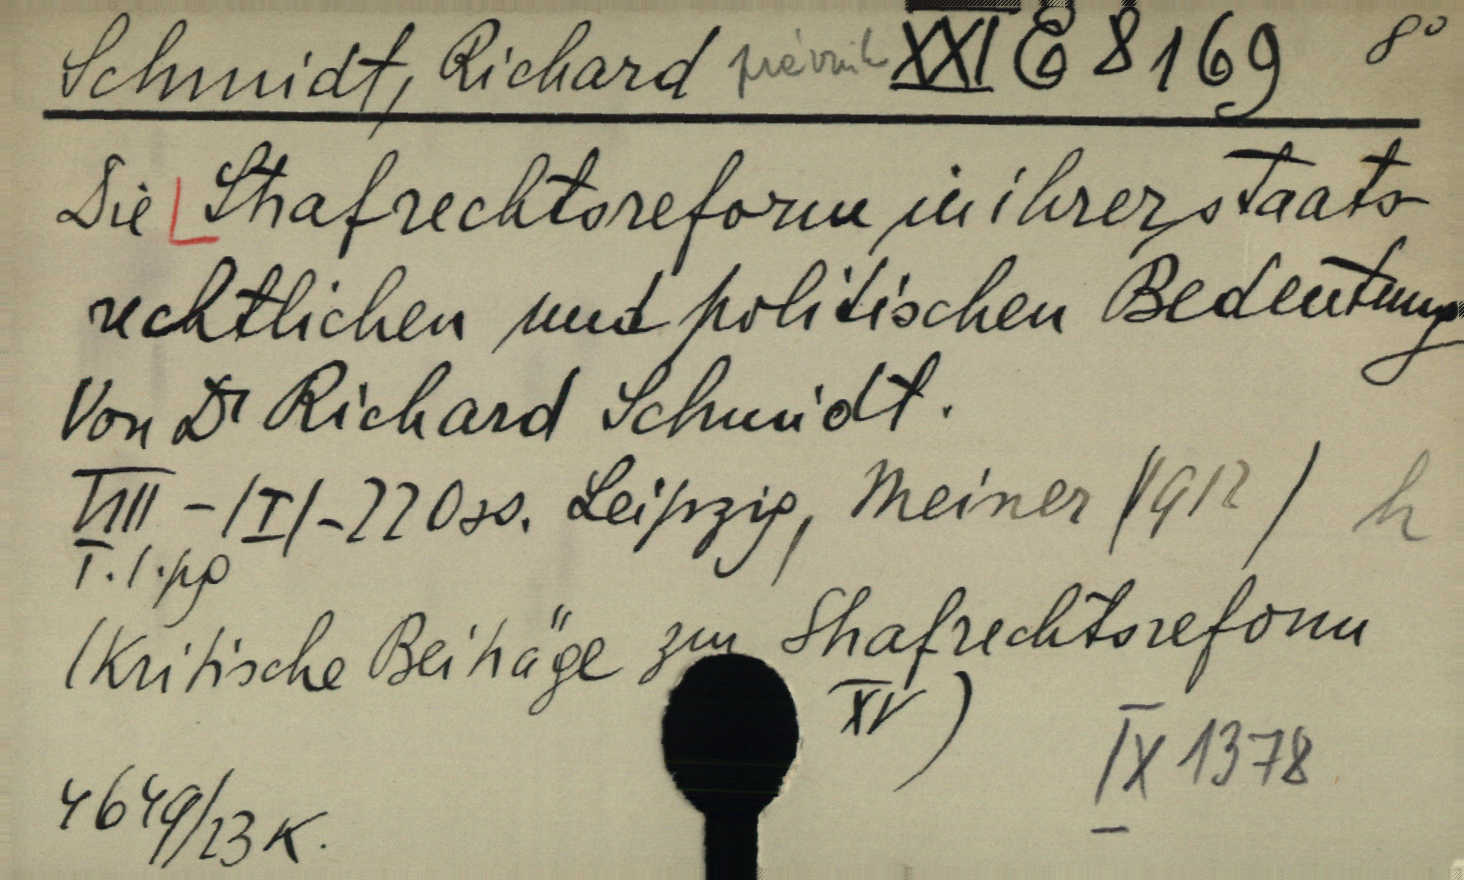 Schmidt, Richard právník XXI E 8169 8°
Die Strafrechtsreform in ihrer staats-
rechtlichen und politischen Bedeutung
Von Dr Richard Schmidt.
VIII - /I/ - 220 ss. Leipzig, Meiner /1912/ h
T. 1. pg
(Kritische Beiträge zur Strafrechtsreform
XV)
IX 1378
4649/23 K.